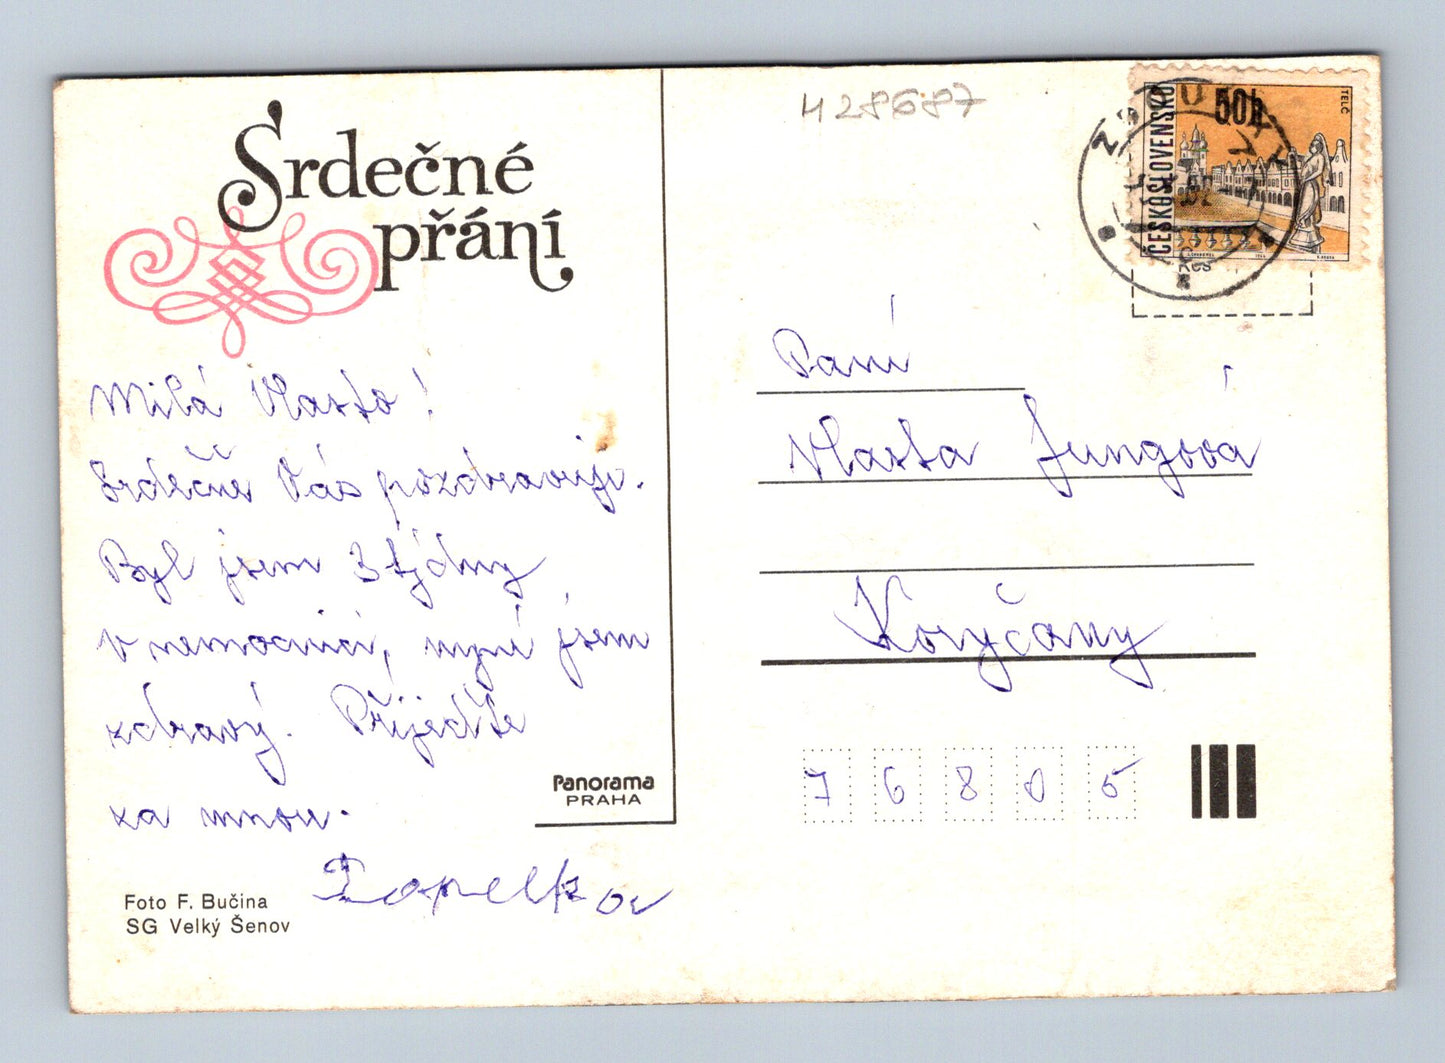 Srdečné
přání
Milá Vlasto!
Srdečně Vás pozdravuji.
Byl jsem 3 týdny
v nemocnici, nyní jsem
zdravý. Přijeďte
za mnou.
Panorama
PRAHA
Foto F. Bučina
SG Velký Šenov
428687
50h
ČESKOSLOVENSKO
TELČ
Paní
Vlasta Jungová
Koryčany
76805